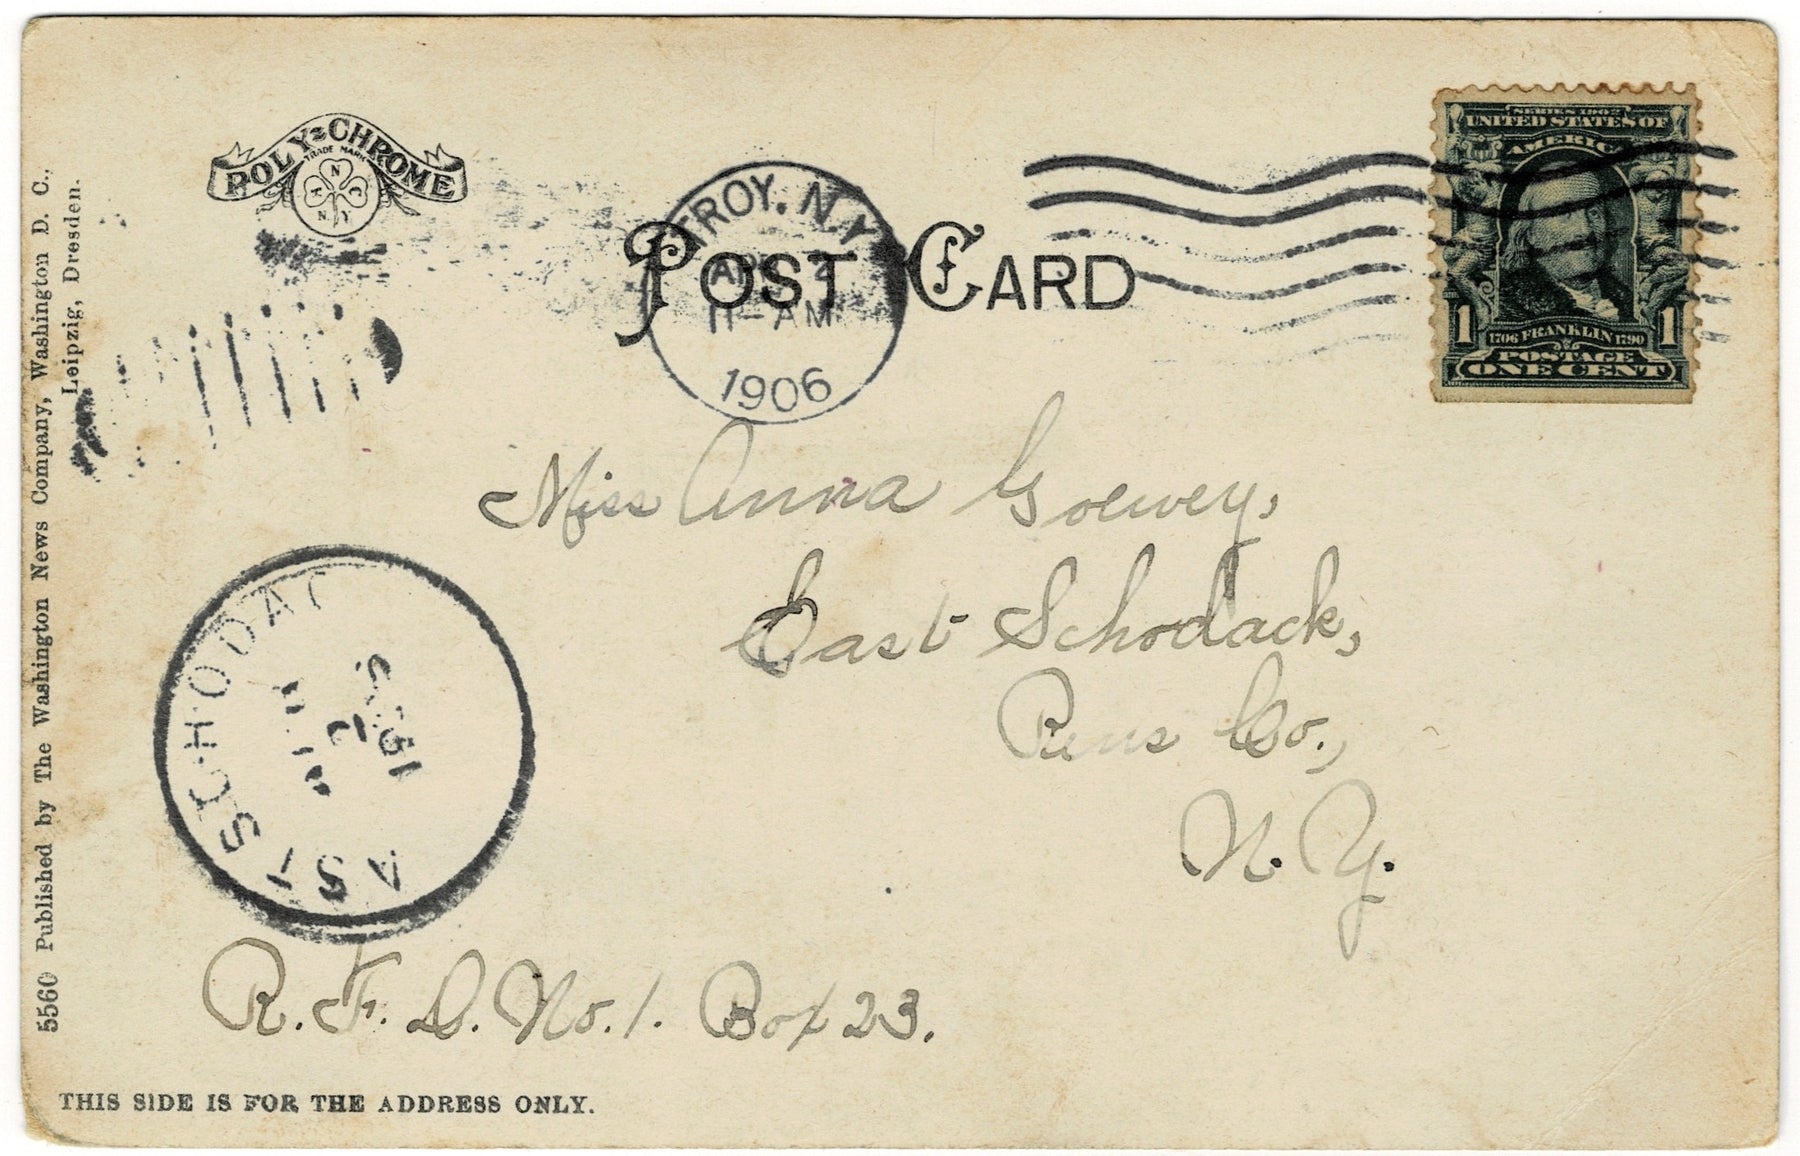 POLY-CHROME
TRADE MARK
A N C
N Y
POST CARD
TROY, N.Y.
11-AM
1906
SERIES 1902
UNITED STATES OF
AMERICA
1 1706 FRANKLIN 1790 1
POSTAGE
ONE CENT
Miss Anna Goewey,
East Schodack,
Rens Co.,
N. Y.
AST SCHODAC
2
R. F. D. No. 1. Box 23.
THIS SIDE IS FOR THE ADDRESS ONLY.
5560 Published by The Washington News Company, Washington D. C.,
Leipzig, Dresden.